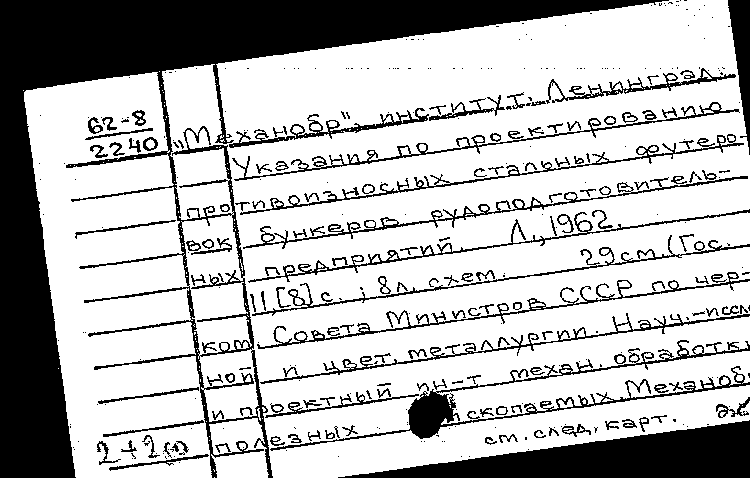 62-8
2240
„Механобр", институт. Ленинград.
Указания по проектированию
противоизносных стальных футеро-
вок бункеров рудоподготовитель-
ных предприятий. Л., 1962.
11,[8] с. ; 8л. схем. 29см.(Гос.
ком. Совета Министров СССР по чер-
ной и цвет. металлургии. Науч.-иссл
и проектный ин-т механ. обработки
полезных ископаемых. Механоб
2+2
см. след. карт.